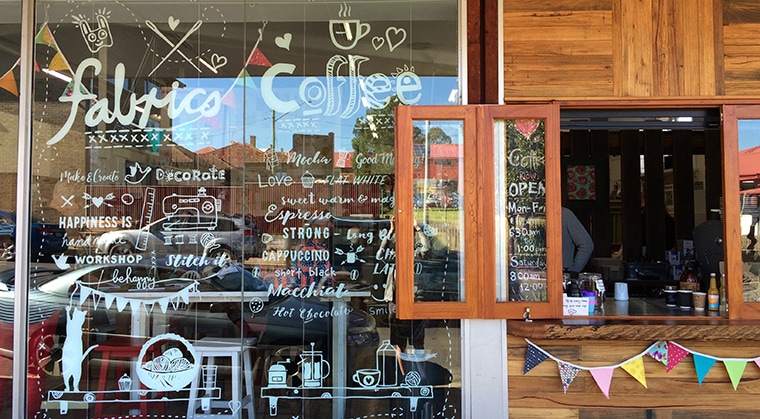 fabrics
xxxxxx
Make & Create
Decorate
HAPPINESS IS
handmade
WORKSHOP
Stitch it
Coffee
xxxxx
Mocha
Good Morn
LOVE
FLAT WHITE
sweet warm &
Espresso
STRONG
Long
CAPPUCCINO
short black
Macchiato
Hot Chocolate
smile
Coffee
OPEN
Mon-Fri
6:30
to
1:00
Saturday
8:00
12:00